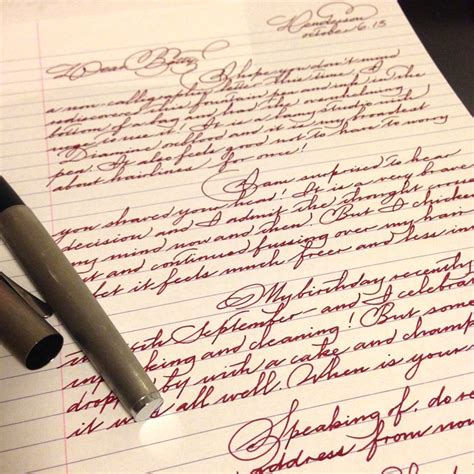 Henderson
October 6.13
Dear Betty,
I hope you don't mind
a non calligraphy letter this time. I
rediscovered this fountain pen and ink in the
bottom of a bag and had the
urge to use it! It is a Lamy Studio with
Diamine oxblood and it is my broadest
pen. It also feels good not to have to worry
about hairlines, for once!
I am surprised to hear
you shaved your head! It is a very brave
decision and I admit the thought crosses
my mind now and then. But I chicken
out and continued fussing over my hair.
bet it feels much freer and less
My birthday recently
September and I celebra
and cleaning! But some
with a cake and champ
it was all well. When is your
Speaking of, do re
address from now